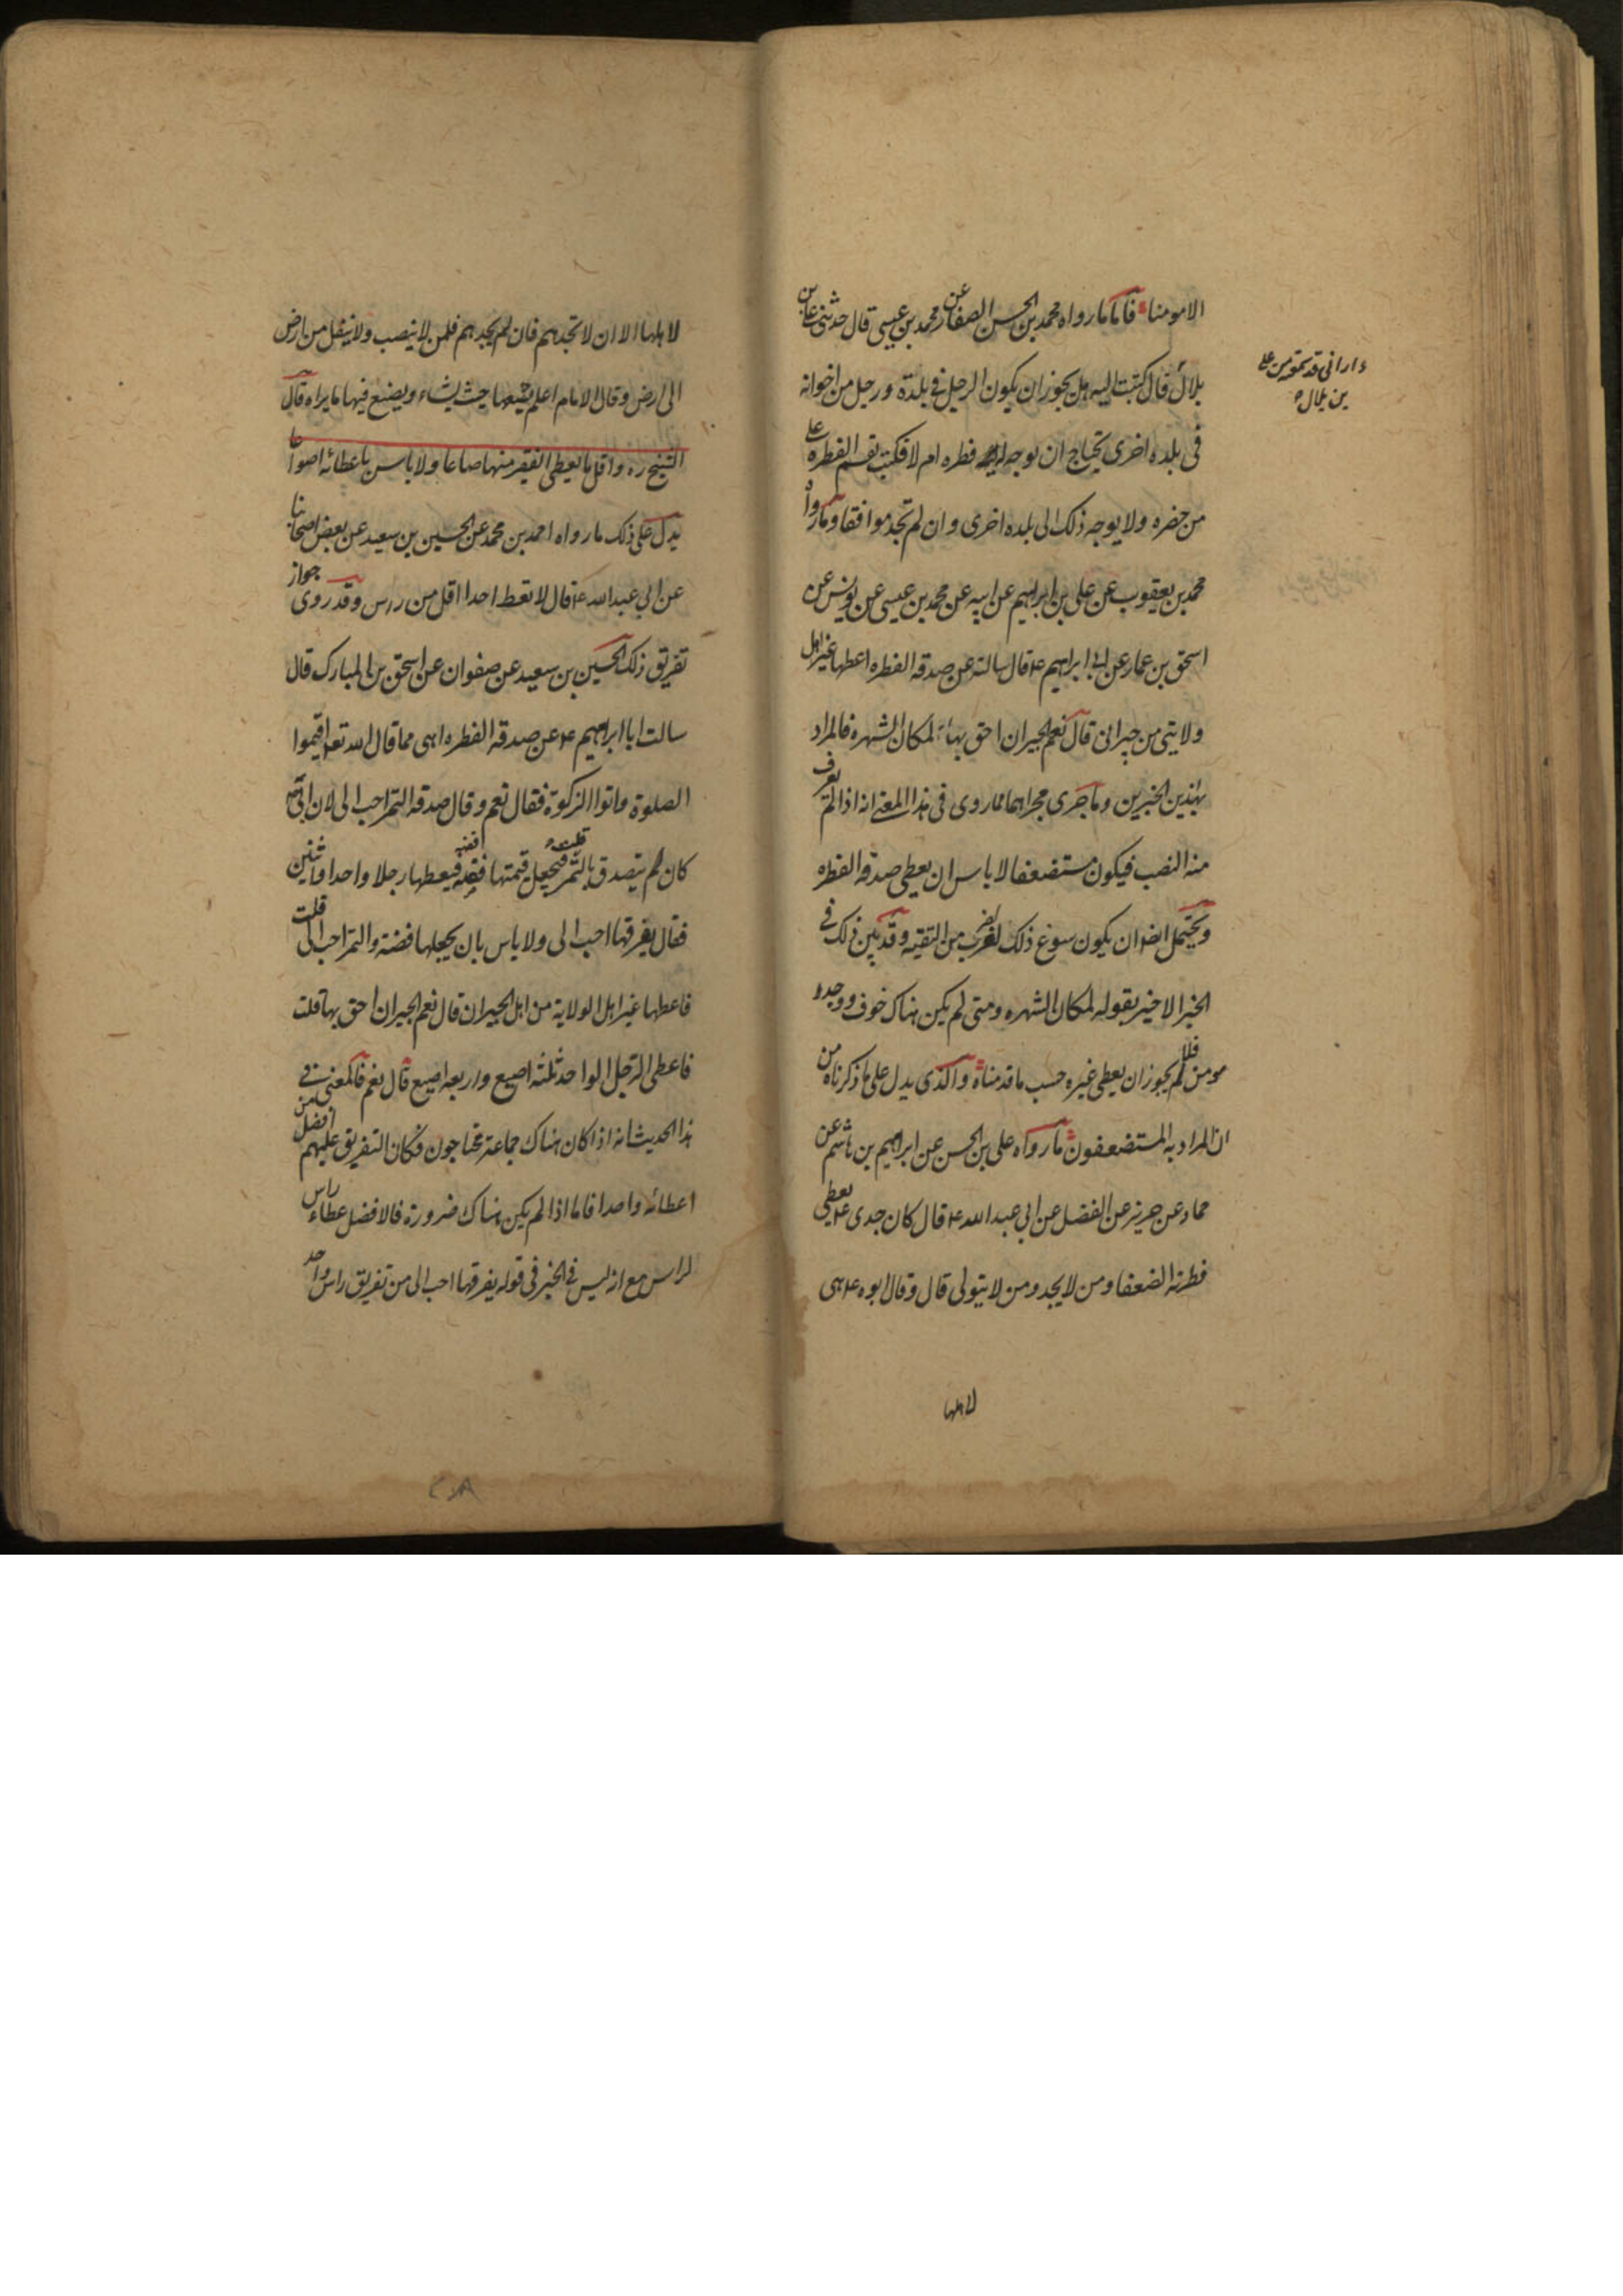 الا مومنا فاما ما رواه محمد بن الحسن الصفار عن محمد بن عيسى قال حدثنى على بن
بلال قال كتبت اليه هل يجوز ان يكون الرجل فى بلدة ورجل من اخوانه
فى بلده اخرى يحتاج ان يوجه له فطره ام لا فكتب تقسم الفطره على
من حضره ولا يوجه ذلك الى بلده اخرى وان لم تجد موافقا وما رواه
محمد بن يعقوب عن على بن ابراهيم عن ابيه عن محمد بن عيسى عن يونس عن
اسحق بن عمار عن ابى ابراهيم ع قال سالته عن صدقه الفطره اعطيها غير اهل
ولايتى من جيرانى قال نعم الجيران احق بها لمكان الشهره فالمراد
بهذين الخبرين وما جرى مجراهما مما روى فى هذا المعنى انه اذا لم يعرف
منه النصب فيكون مستضعفا لا باس ان يعطى صدقه الفطره
ويحتمل ايضا ان يكون سوغ ذلك لضرب من التقيه وقد بين ذلك فى
الخبر الاخير بقوله لمكان الشهره ومتى لم يكن هناك خوف ووجد
مومن فلم يجوز ان يعطى غيره حسب ما قدمناه والذى يدل على ما ذكرناه من
ان المراد به المستضعفون ما رواه على بن الحسن عن ابراهيم بن هاشم عن
حماد عن حريز عن الفضل عن ابى عبد الله ع قال كان جدى ع يعطى
فطرته الضعفا ومن لا يجد ومن لا يتولى قال وقال ابوه ع هى
لاهلها
ارانى قد سمعته من على
بن بلال
لاهلها الا ان لا تجدهم فان لم تجدهم فلمن لا ينصب ولا ينقل من ارض
الى ارض وقال الامام اعلم يضعها حيث يشاء ويصنع فيها ما يراه قال
الشيخ ره واقل ما يعطى الفقير منها صاعا ولا باس باعطائه اصواعا
يدل على ذلك ما رواه احمد بن محمد عن الحسين بن سعيد عن بعض اصحابنا
عن ابى عبد الله ع قال لا تعط احدا اقل من راس وقد روى جواز
تفريق ذلك الحسين بن سعيد عن صفوان عن اسحق بن المبارك قال
سالت ابا ابراهيم ع عن صدقه الفطره اهى مما قال الله تعه اقيموا
الصلوة واتوا الزكوة فقال نعم وقال صدقه التمر احب الى لان ابى ص
كان يتصدق بالتمر قلت فيجعل قيمتها فضه فيعطيها رجلا واحدا او اثنين
فقال يفرقها احب الى ولا باس بان يجعلها فضه والتمر احب الى قلت
فاعطيها غير اهل الولاية من اهل الجيران قال نعم الجيران احق بها قلت
فاعطى الرجل الواحد ثلثه اصيع واربعه اصيع قال نعم فالمعنى فى
هذا الحديث انه اذا كان هناك جماعة محتاجون فكان التفريق عليهم افضل من
اعطائه واحدا فاما اذا لم يكن هناك ضرورة فالافضل اعطاء راس
لراس مع انه ليس فى الخبر فى قوله يفرقها احب الى من تفريق راس واحد